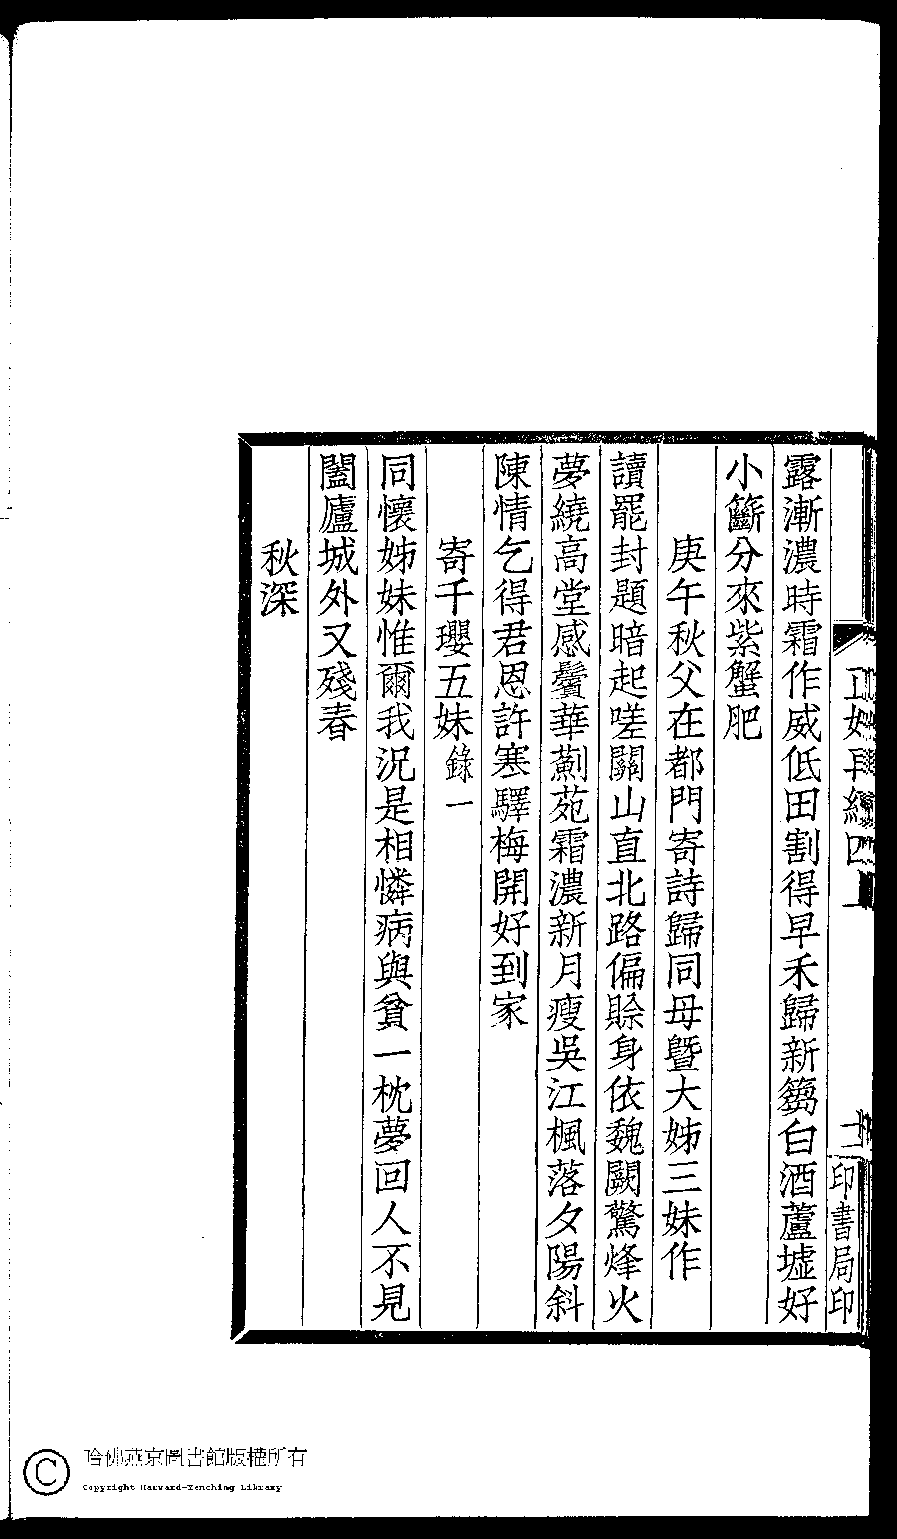 露漸濃時霜作威低田割得早禾歸新篘白酒蘆墟好
小籪分來紫蟹肥
庚午秋父在都門寄詩歸同母暨大姊三妹作
讀罷封題暗起嗟關山直北路偏賒身依魏闕驚烽火
夢繞高堂感鬢華薊苑霜濃新月瘦吳江楓落夕陽斜
陳情乞得君恩許寒驛梅開好到家
寄千瓔五妹錄一
同懷姊妹惟爾我況是相憐病與貧一枕夢回人不見
闔廬城外又殘春
秋深
印書局印
哈佛燕京圖書館版權所有
Copyright Harvard-Yenching Library